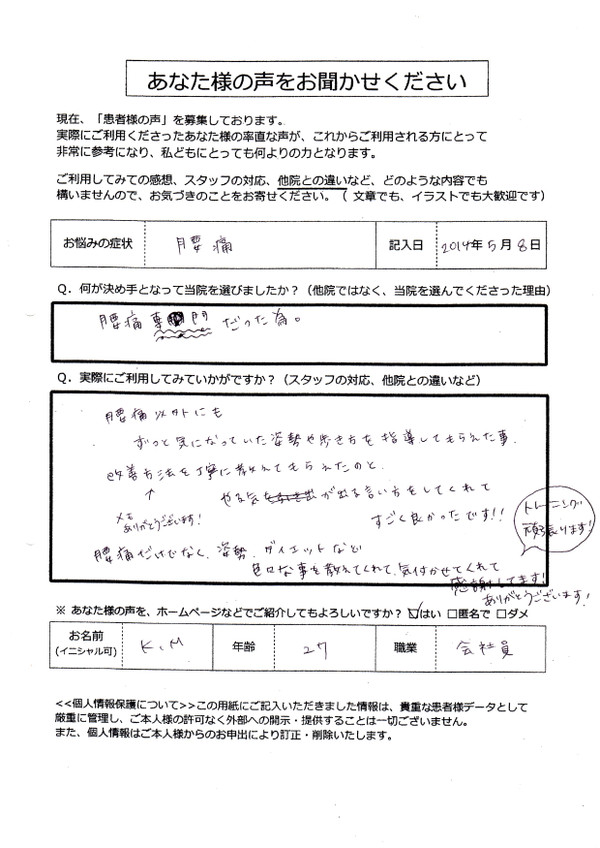 あなた様の声をお聞かせください
現在、「患者様の声」を募集しております。
実際にご利用くださったあなた様の率直な声が、これからご利用される方にとって
非常に参考になり、私どもにとっても何よりの力となります。
ご利用してみての感想、スタッフの対応、他院との違いなど、どのような内容でも
構いませんので、お気づきのことをお寄せください。（ 文章でも、イラストでも大歓迎です）
お悩みの症状 腰痛 記入日 2014年5月8日
Q．何が決め手となって当院を選びましたか？（他院ではなく、当院を選んでくださった理由）
腰痛専門だった為。
Q．実際にご利用してみていかがですか？（スタッフの対応、他院との違いなど）
腰痛以外にも
ずっと気になっていた姿勢や歩き方を指導してもらえた事.
改善方法を丁寧に教えてもらえたのと.
↑
メモ
ありがとうございます!
やる気が出る言い方をしてくれて
すごく良かったです!!
トレーニング
頑張ります!
腰痛だけでなく、姿勢、ダイエットなど
色々な事を教えてくれて、気付かせてくれて
感謝してます!
ありがとうございます!
※ あなた様の声を、ホームページなどでご紹介してもよろしいですか？ ☑はい □匿名で □ダメ
お名前 K.M 年齢 27 職業 会社員
(イニシャル可)
<<個人情報保護について>>この用紙にご記入いただきました情報は、貴重な患者様データとして
厳重に管理し、ご本人様の許可なく外部への開示・提供することは一切ございません。
また、個人情報はご本人様からのお申出により訂正・削除いたします。